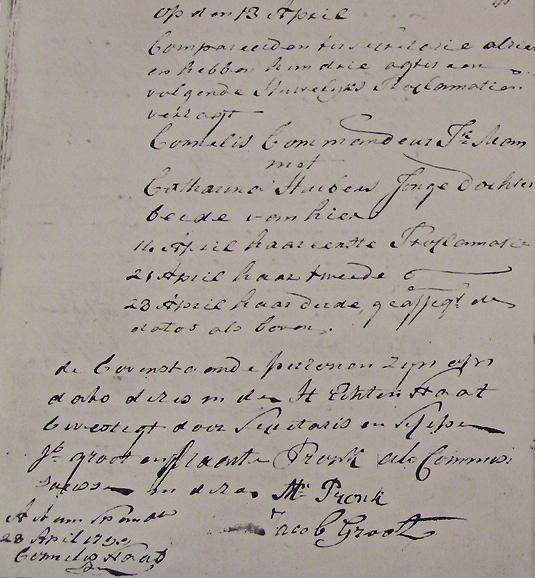 op den 13 April
Compareerden ter secretarie alhier
en hebben hun drie agter een
volgende Huwelijks Proclamatien
versogt
Cornelis Commandeur Jk Man
met
Catharina Huibers Jonge Dochter
beide van hier
14 April haar eerste Proclamatie
21 April haar tweede
28 April haar derde, geaffigt de
datos als boven.
de bovenstaande personen zyn opn
dato dezes in den H Echten Staat
bevestigt door Secretaris en Schepen
Jb groot en Pronk als Commis
in dezen Mr Pronk
Actum
28 April Jacob Groot
Cornelis